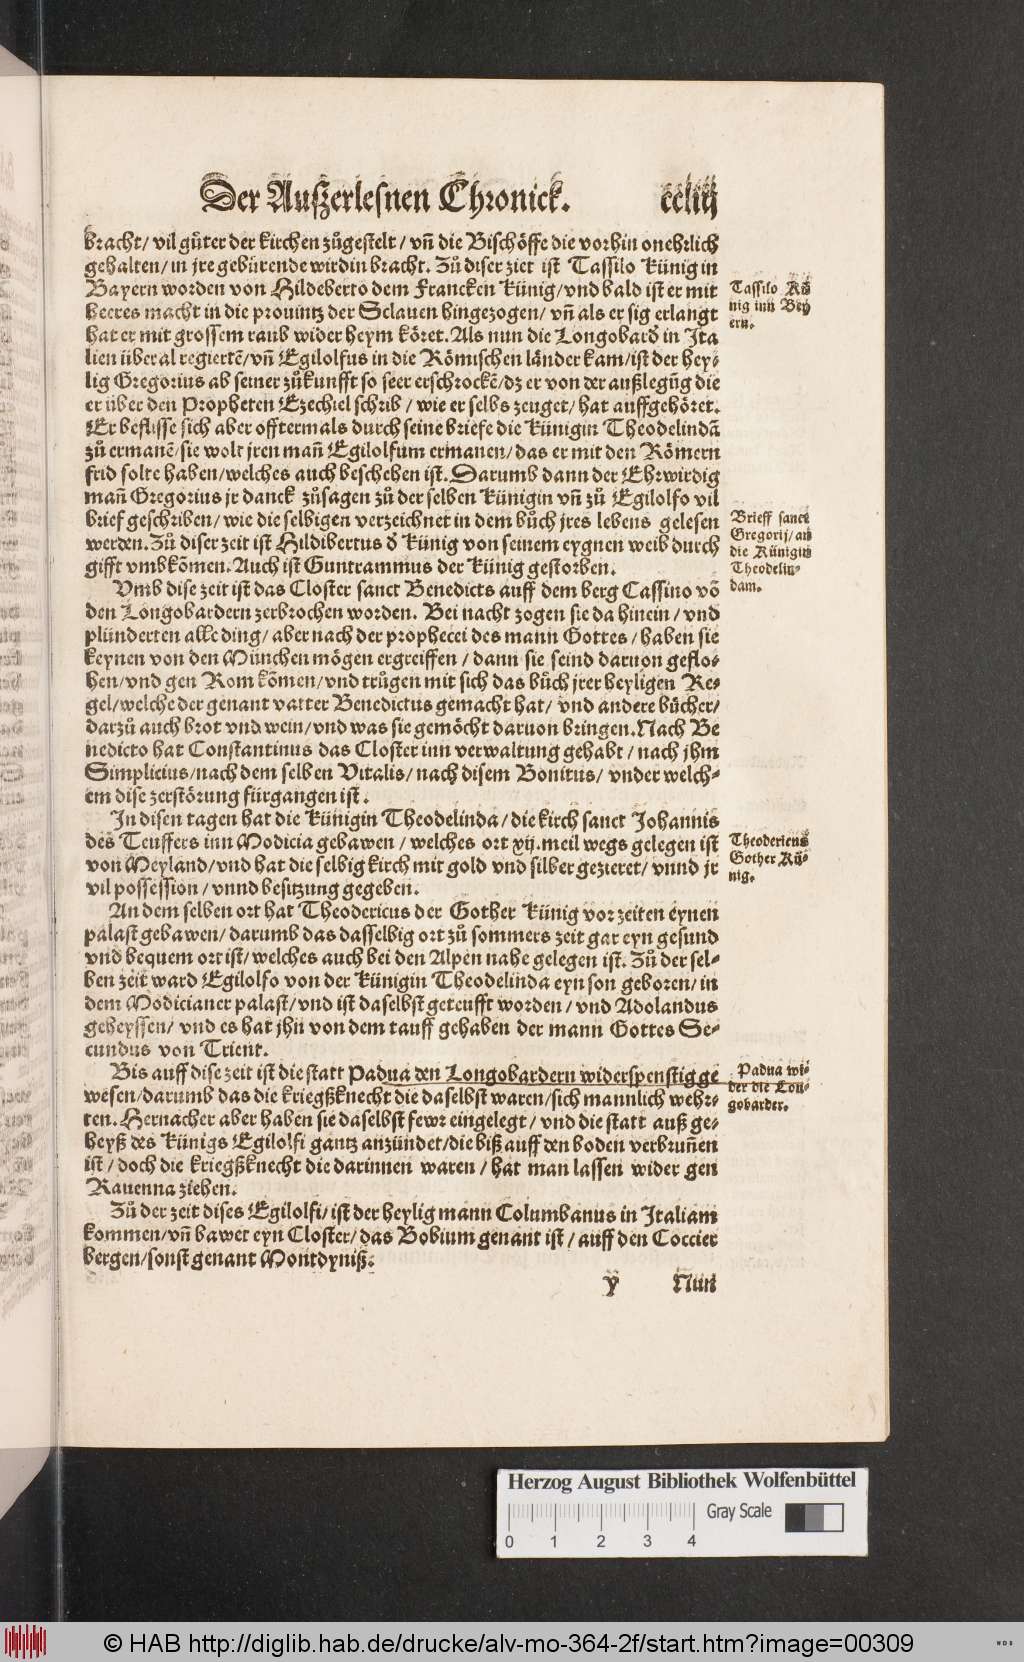 Der Außerlesnen Chronick. ccliij
bracht/ vil gůter der kirchen zůgestelt/ vñ die Bischöffe die vorhin onehrlich
gehalten/ in jre gebürende wirdin bracht. Zů diser ziet ist Tassilo Künig in
Bayern worden von Hildeberto dem Francken Künig/ vnd bald ist er mit
heeres macht in die prouintz der Sclauen hingezogen/ vñ als er sig erlangt
hat er mit grossem raub wider heym köret. Als nun die Longobard̃ in Ita
lien über al regiertẽ/ vñ Egilolfus in die Römischen länder kam/ ist der hey⸗
lig Gregorius ab seiner zůkunfft so seer erschrockẽ/ dz er von der außlegũg die
er über den Propheten Ezechiel schrib/ wie er selbs zeuget/ hat auffgehöret.
Er beflisse sich aber offtermals durch seine briefe die Künigin Theodelindã
zů ermanẽ/ sie wolt jren mañ Egilolfum ermanen/ das er mit den Römern
frid solte haben/ welches auch beschehen ist. Darumb dann der Ehrwirdig
mañ Gregorius jr danck zůsagen zů der selben Künigin vñ zů Egilolfo vil
brief geschriben/ wie die selbigen verzeichnet in dem bůch jres lebens gelesen
werden. Zů diser zeit ist Hildibertus d̃ Künig von seinem eygnen weib durch
gifft vmbkõmen. Auch ist Guntrammus der Künig gestorben.
Vmb dise zeit ist das Closter sanct Benedicts auff dem berg Cassino võ
den Longobardern zerbrochen worden. Bei nacht zogen sie da hinein/ vnd
plünderten alle ding/ aber nach der prophecei des mann Gottes/ haben sie
keynen von den München mögen ergreiffen/ dann sie seind daruon geflo⸗
hen/ vnd gen Rom kõmen/ vnd trůgen mit sich das bůch jrer heyligen Re⸗
gel/ welche der genant vatter Benedictus gemacht hat/ vnd andere bücher/
darzů auch brot vnd wein/ vnd was sie gemöcht daruon bringen. Nach Be
nedicto hat Constantinus das Closter inn verwaltung gehabt/ nach jhm
Simplicius/ nach dem selben Vitalis/ nach disem Bonitus/ vnder welch⸗
em dise zerstörung fürgangen ist.
In disen tagen hat die Künigin Theodelinda/ die kirch sanct Johannis
des Teuffers inn Modicia gebawen/ welches ort xij. meil wegs gelegen ist
von Meyland/ vnd hat die selbig kirch mit gold vnd silber gezieret/ vnnd jr
vil possession/ vnnd besitzung gegeben.
An dem selben ort hat Theodericus der Gother Künig vor zeiten eynen
palast gebawen/ darumb das dasselbig ort zů sommers zeit gar eyn gesund
vnd bequem ort ist/ welches auch bei den Alpen nahe gelegen ist. Zů der sel⸗
ben zeit ward Egilolfo von der Künigin Theodelinda eyn son geboren/ in
dem Modicianer palast/ vnd ist daselbst geteufft worden/ vnd Adolandus
geheyssen/ vnd es hat jhn von dem tauff gehaben der mann Gottes Se⸗
cundus von Trient.
Bis auff dise zeit ist die statt Padua den Longobardern widerspenstig ge
wesen/ darumb das die kriegßknecht die daselbst waren/ sich mannlich wehr⸗
ten. Hernacher aber haben sie daselbst fewr eingelegt/ vnd die statt auß ge⸗
heyß des Künigs Egilolfi gantz anzündet/ die biß auff den boden verbruñen
ist/ doch die kriegßknecht die darinnen waren/ hat man lassen wider gen
Rauenna ziehen.
Zů der zeit dises Egilolfi/ ist der heylig mann Columbanus in Italiam
kommen/ vñ bawet eyn Closter/ das Bobium genant ist/ auff den Coccier
bergen/ sonst genant Montdyniß.
y Nun
Tassilo Kü
nig inn Bey
ern.
Brieff sanct
Gregorij/ an
die Künigin
Theodelin⸗
dam.
Theodericus
Gother Kü⸗
nig.
Padua wi⸗
der die Lon⸗
gobarder.
Herzog August Bibliothek Wolfenbüttel
0 1 2 3 4 Gray Scale
© HAB http://diglib.hab.de/drucke/alv-mo-364-2f/start.htm?image=00309